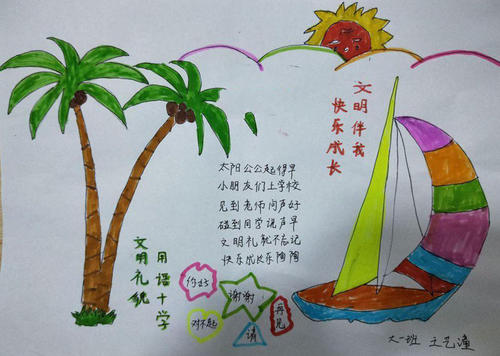 文明伴我
快乐成长
太阳公公起得早
小朋友们上学校
见到老师问声好
碰到同学说声早
文明礼就不忘记
快乐成长乐陶陶
文明礼貌
用语十字
你好
谢谢
再见
对不起
请
大一班 王艺潼